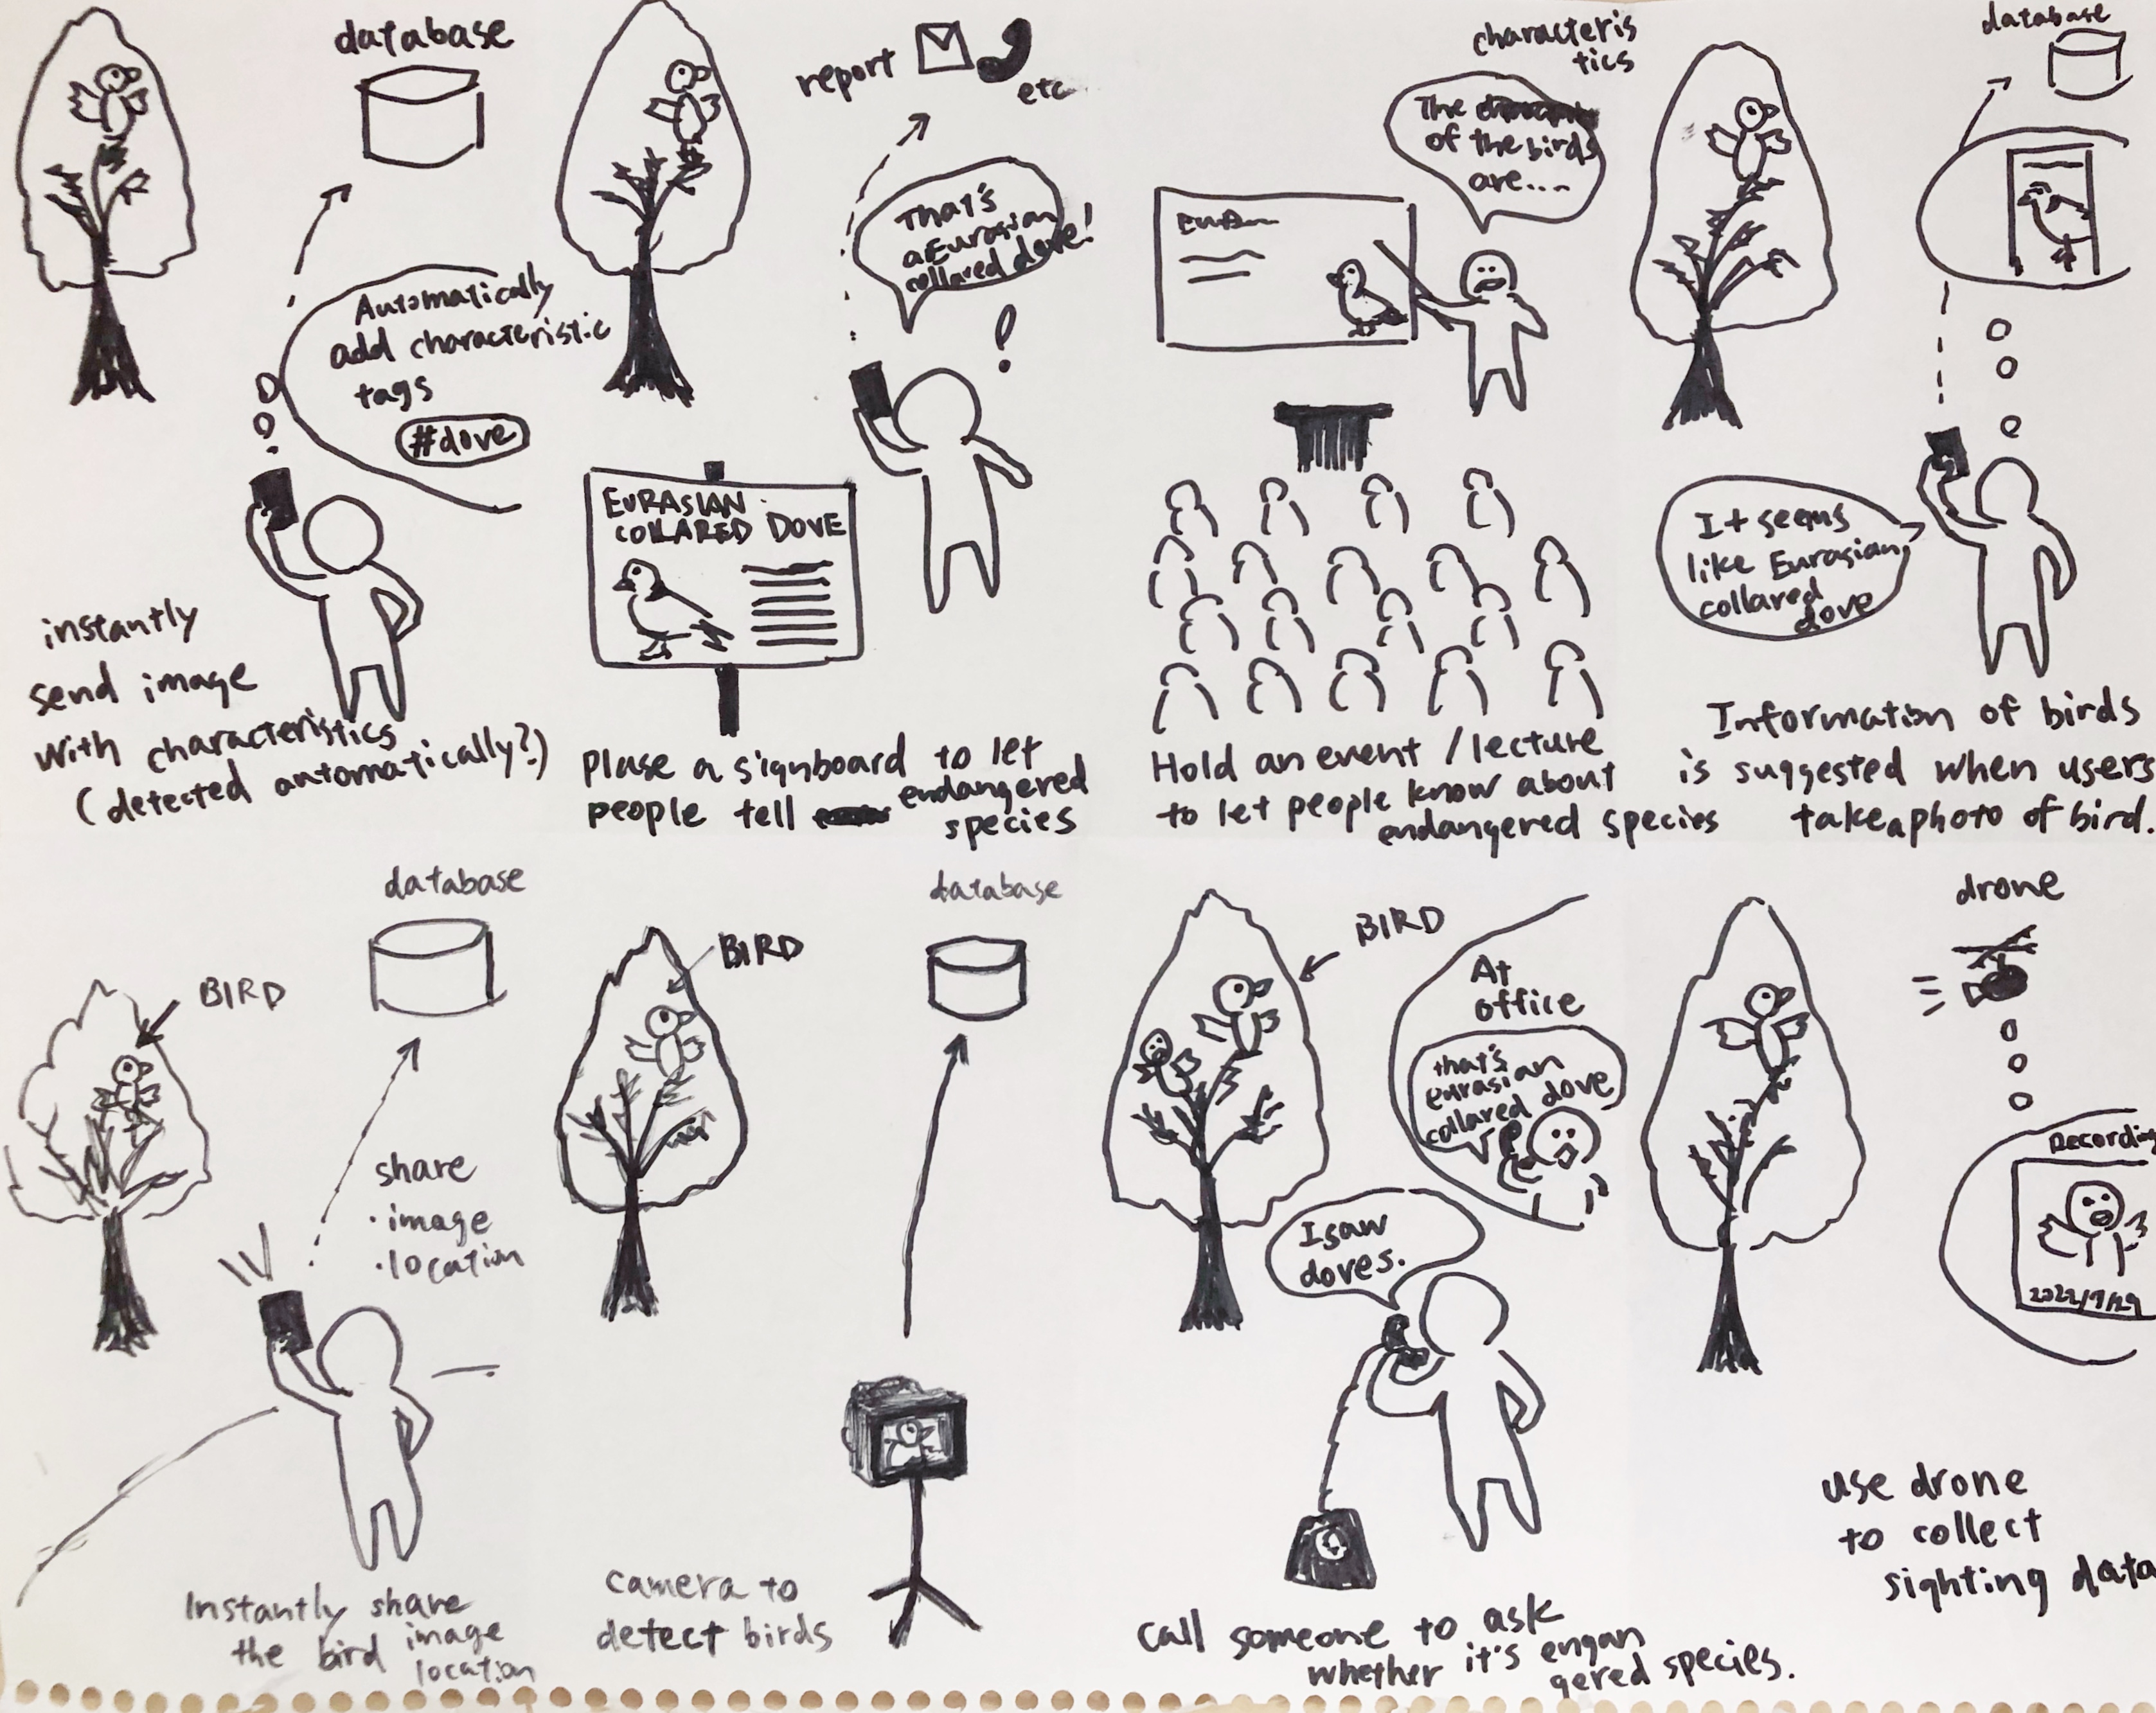 database
Automatically
add characteristic
tags
#dove
instantly
send image
with characteristics
(detected automatically?)
report
etc
That's
a Eurasian
collared dove!
!
EURASIAN
COLLARED DOVE
Plase a signboard to let
people tell endangered
species
characteris
tics
The
of the birds
are....
Hold an event / lecture
to let people know about
endangered species
database
It seems
like Eurasian
collared
dove
Information of birds
is suggested when users
take a photo of bird.
database
BIRD
share
・image
・location
Instantly share
the bird image
location
database
BIRD
camera to
detect birds
BIRD
At
office
that's
eurasian
collared dove
I saw
doves.
call someone to ask
whether it's engan
gered species.
drone
Recording
2022/7/29
use drone
to collect
sighting data